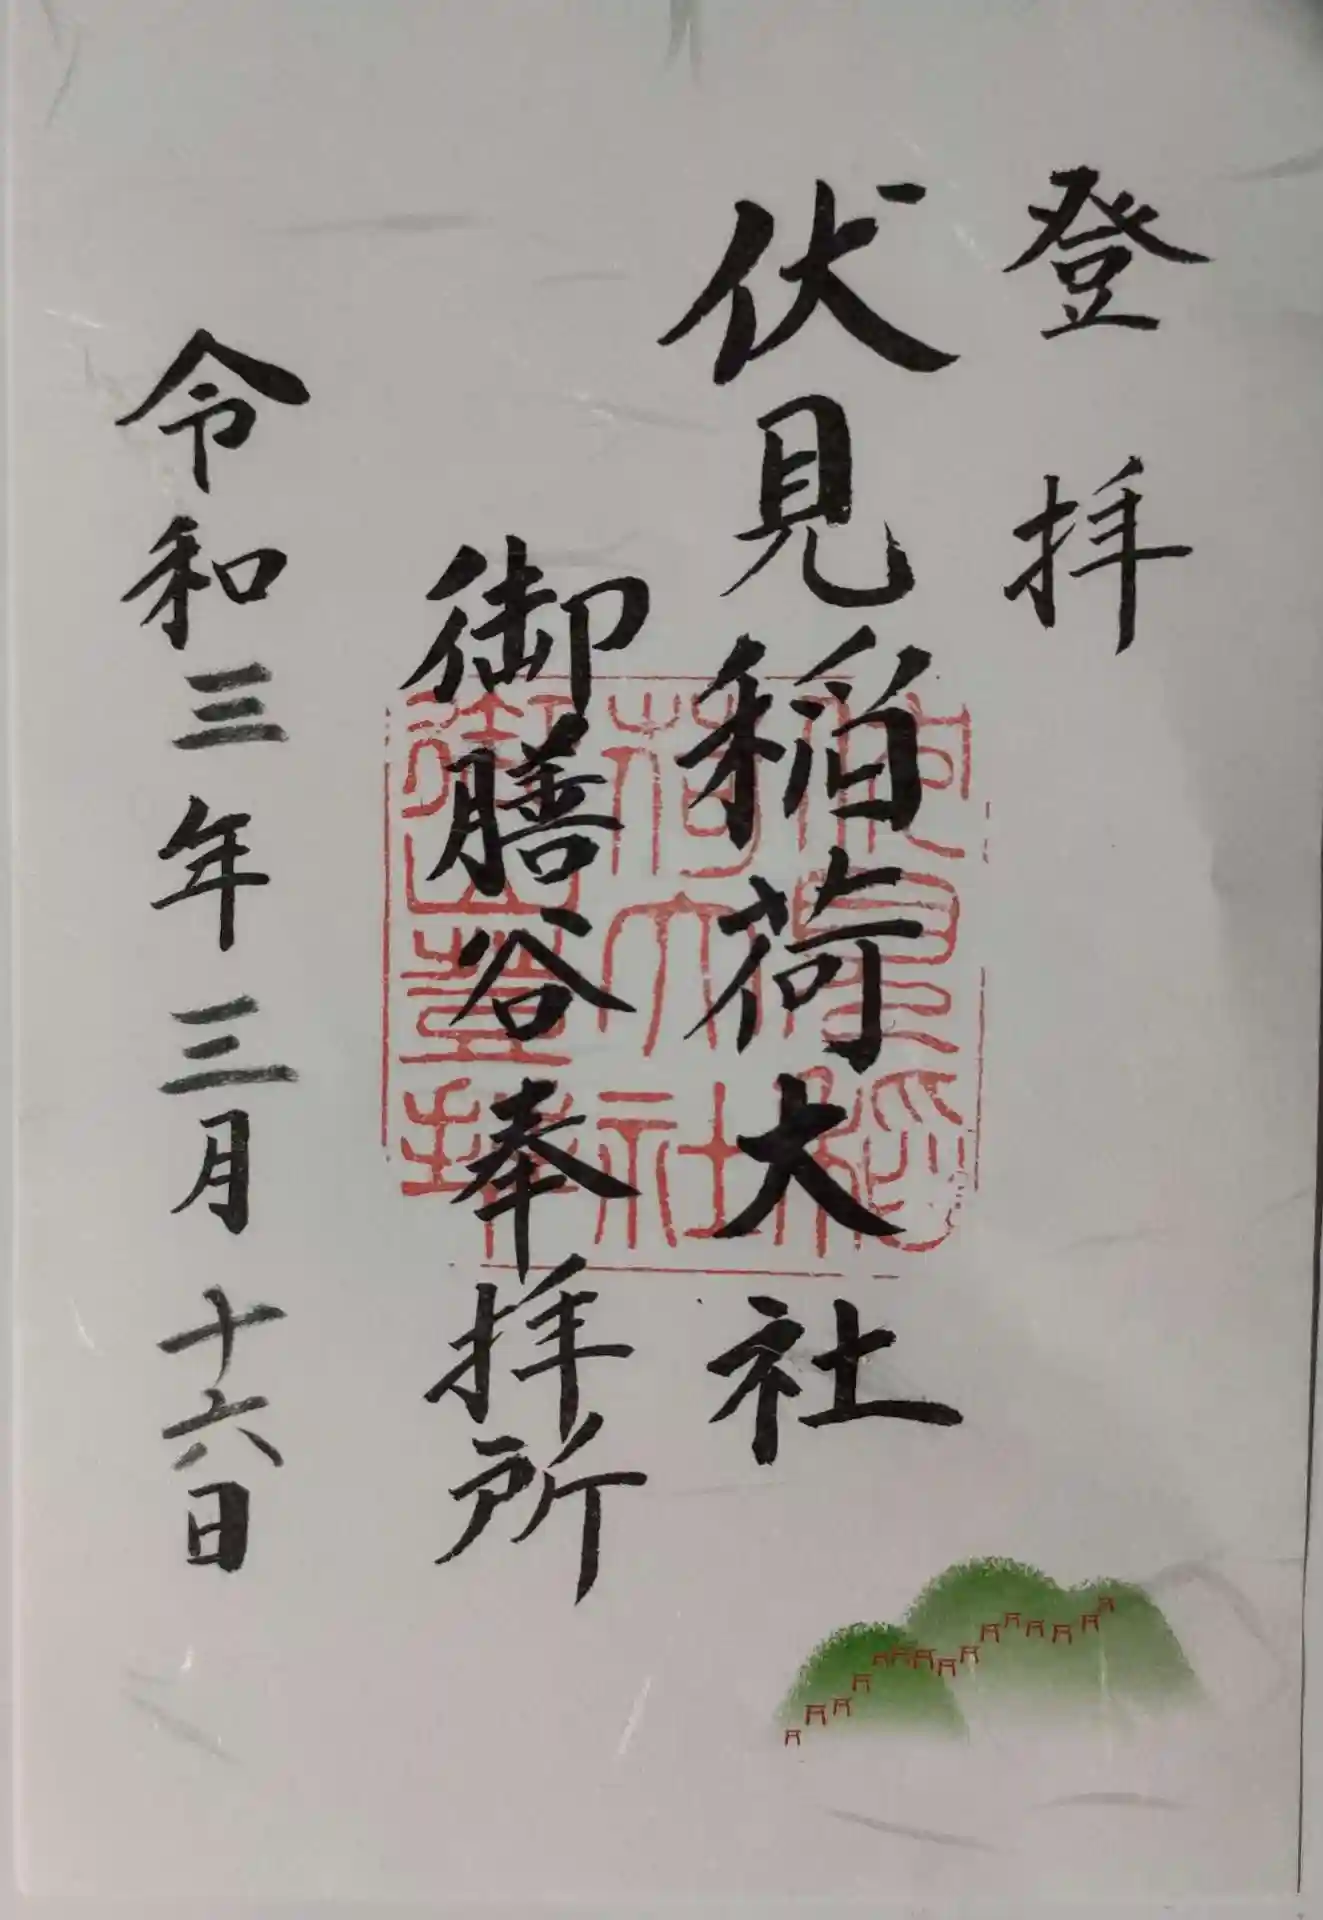 登拝
伏見稲荷大社
御膳谷奉拝所
令和三年三月十六日
伏見稲
荷大社
御山登拝